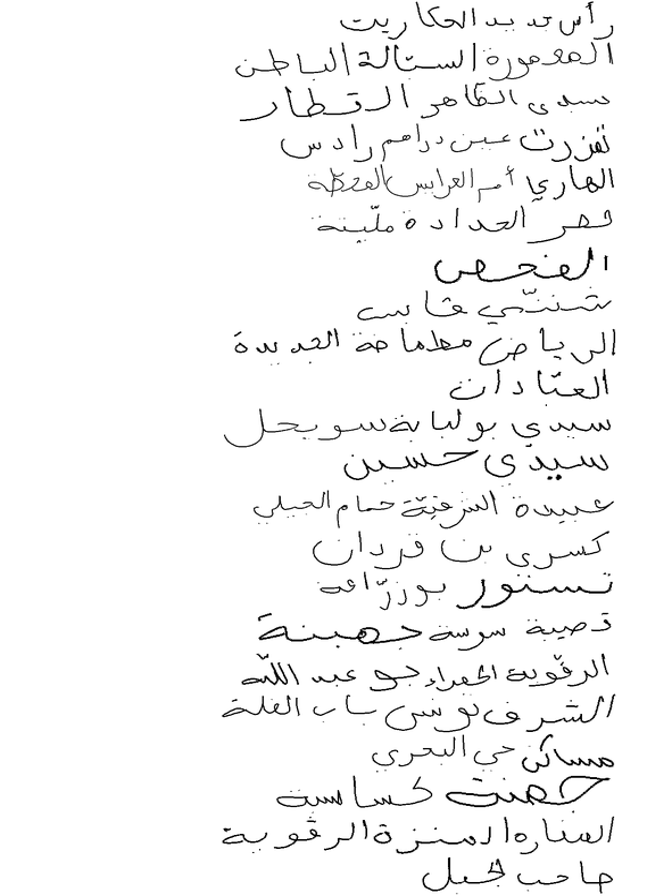 رأس جديد الحكاريت
المعمورة الستالة الباطن
سيدي الظاهر القطار
تفزرت عين دراهم رادس
الهاري أم العرايس
قصر الحدادة ملّيتة
الفحص
شنني قابس
الرياض مطماطة الجديدة
العبّادان
سيدي بولبابة سويحل
سيدي حسين
عبيدة الشرفيّة حمام الجبلي
كسرى بن قردان
تستور بوزرّاعة
قصيبة سوسة جهينة
الرقوبة الحمراء جو عبد الله
الشرف تونس باب الفلة
مساكن حي البحري
كساسبة
المناره المنزة الرقوبة
صاحب الجبل